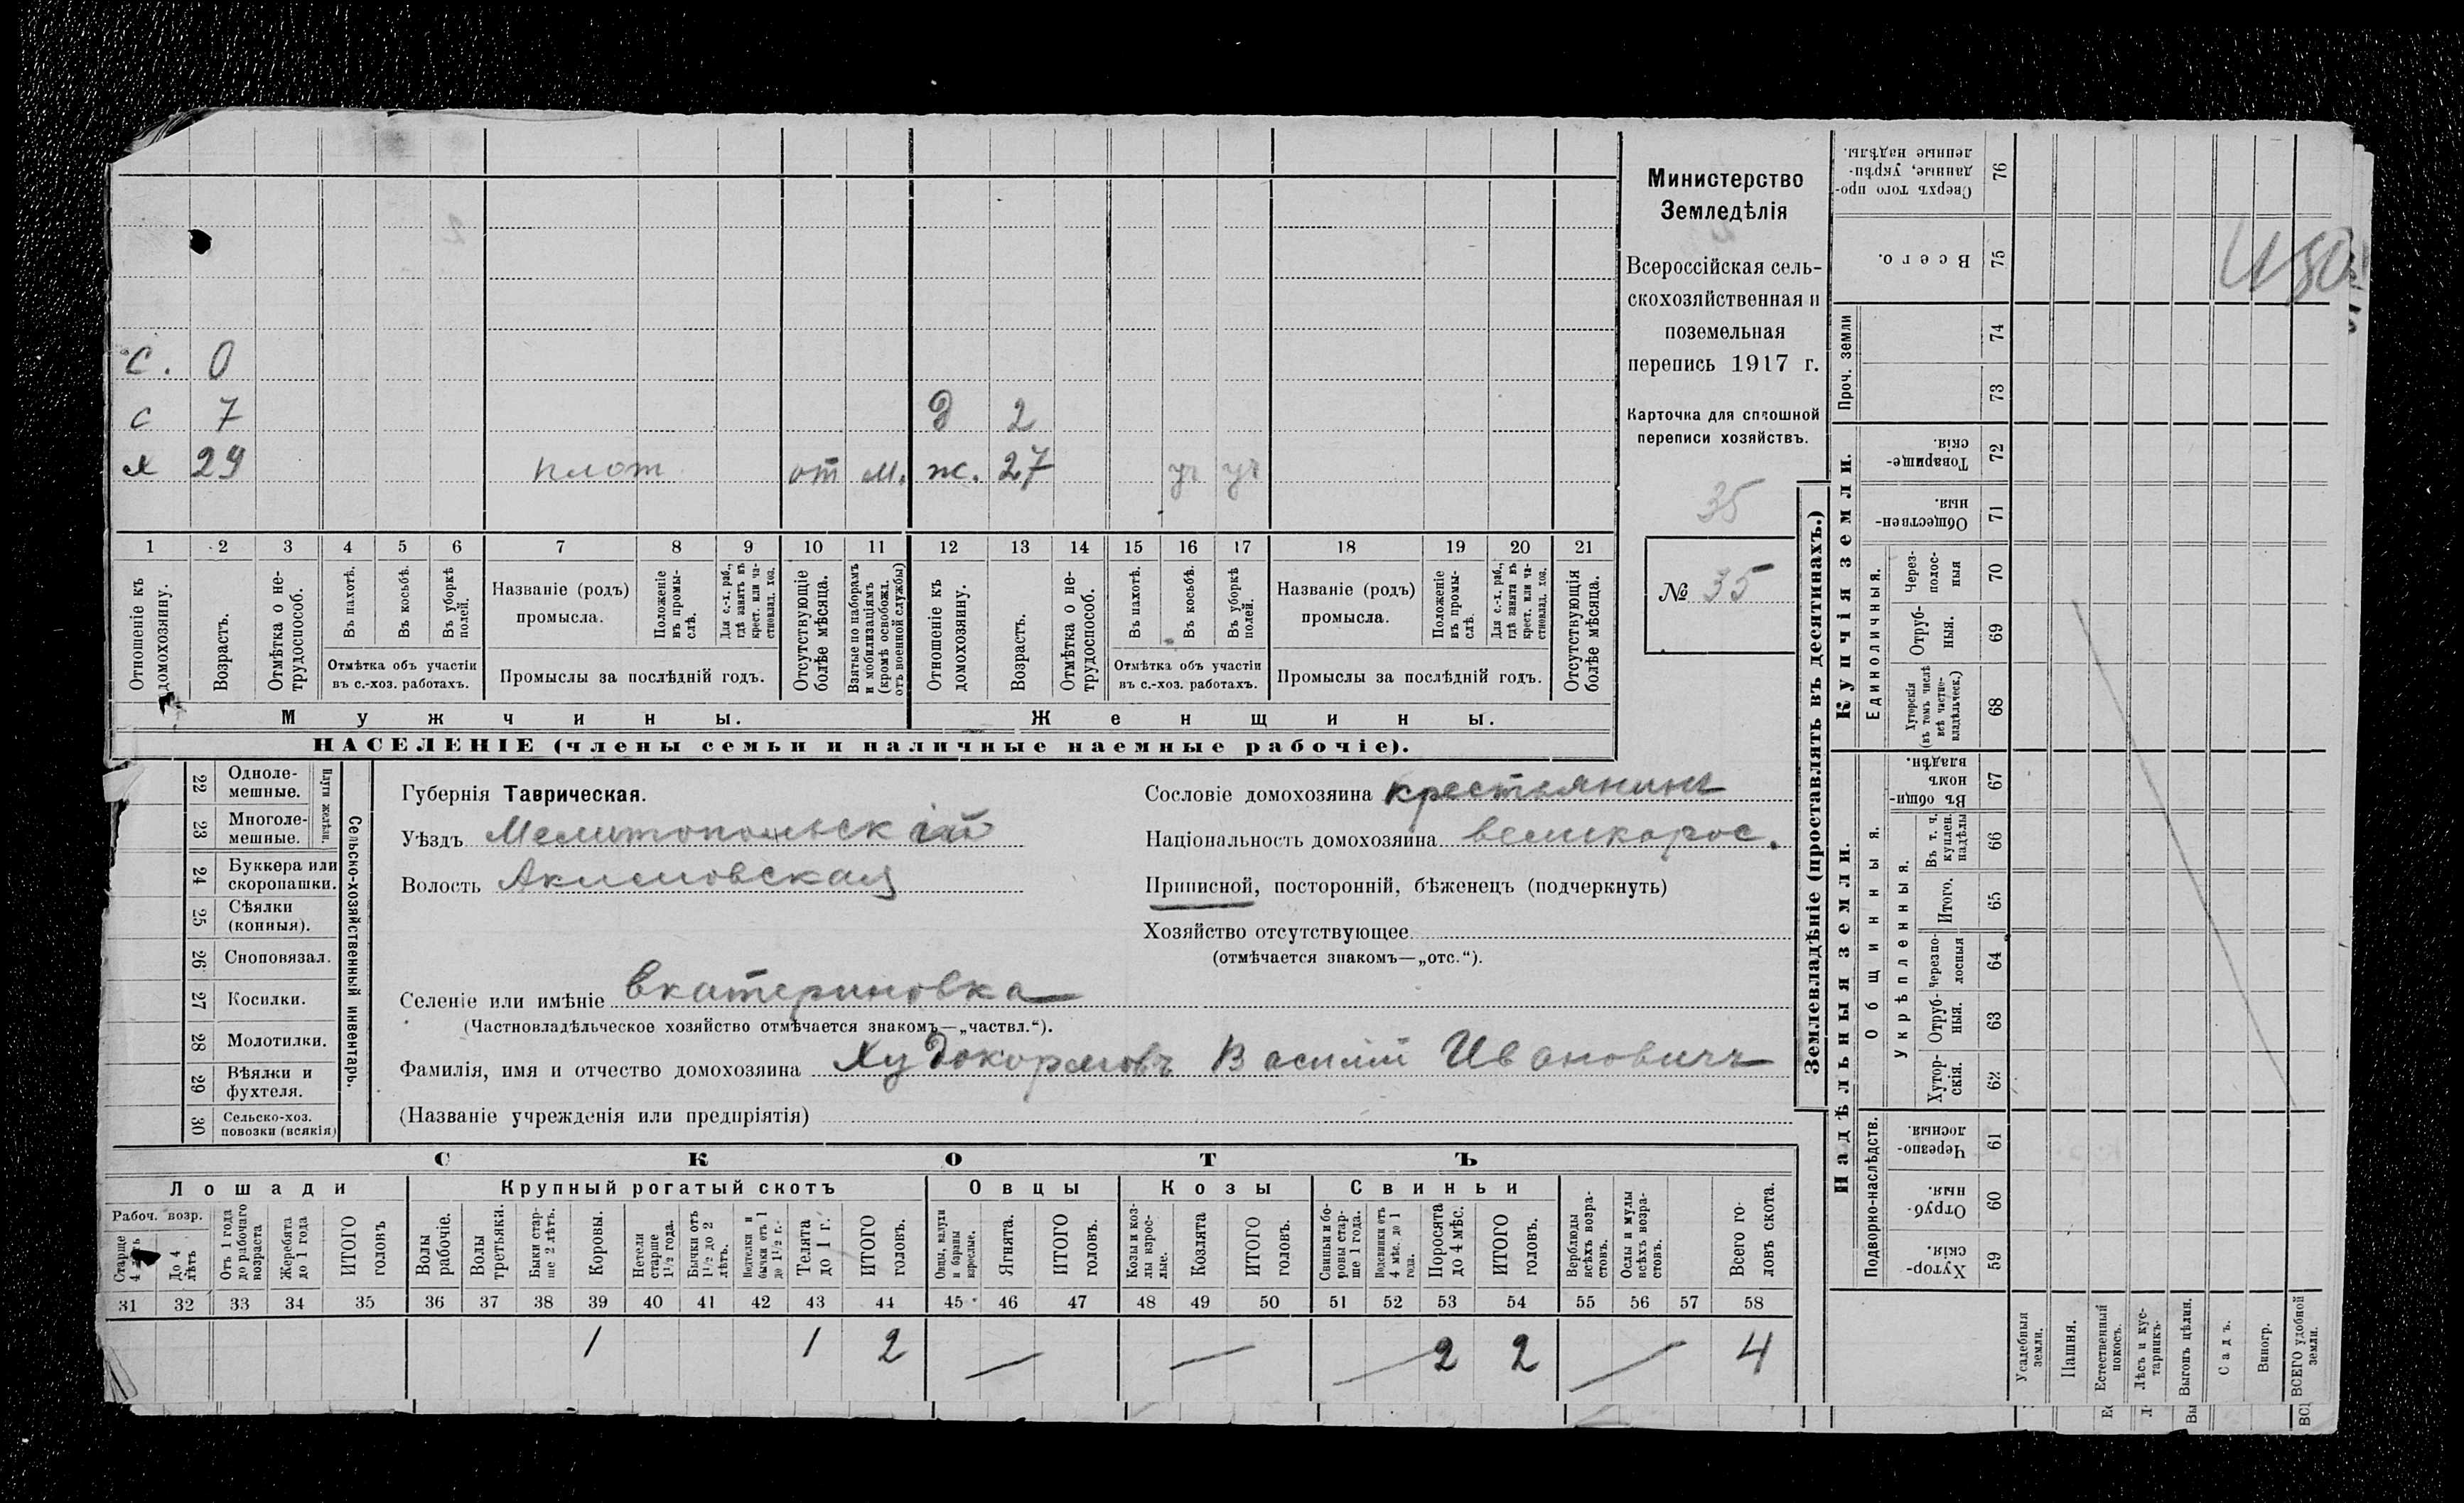 С. 0
с 7 д 2
х 29 плот от м. ж. 27 уч уч
1 2 3 4 5 6 7 8 9 10 11 12 13 14 15 16 17 18 19 20 21
Отношеніе къ домохозяину.
Возрастъ.
Отмѣтка о не-
трудоспособ.
Въ пахотѣ.
Въ косьбѣ.
Въ уборкѣ
полей.
Отмѣтка объ участіи
въ с.-хоз. работахъ.
Названіе (родъ)
промысла.
Положеніе
въ промы-
слѣ.
Для с.-х. раб.,
гдѣ занятъ въ
крест. или ча-
стновлад. хоз.
Промыслы за послѣдній годъ.
Отсутствующіе
болѣе мѣсяца.
Взятые по наборамъ
и мобилизаціямъ
(кромѣ освобожд.
отъ военной службы)
Отношеніе къ
домохозяину.
Возрастъ.
Отмѣтка о не-
трудоспособ.
Въ пахотѣ.
Въ косьбѣ.
Въ уборкѣ
полей.
Отмѣтка объ участіи
въ с.-хоз. работахъ.
Названіе (родъ)
промысла.
Положеніе
въ промы-
слѣ.
Для с.-х. раб.,
гдѣ занята въ
крест. или ча-
стновлад. хоз.
Промыслы за послѣдній годъ.
Отсутствующія
болѣе мѣсяца.
Мужчины. Женщины.
НАСЕЛЕНІЕ (члены семьи и наличные наемные рабочіе).
Министерство
Земледѣлія
Всероссійская сель-
скохозяйственная и
поземельная
перепись 1917 г.
Карточка для сплошной
переписи хозяйствъ.
35
№ 35
22 Одноле-
мешные.
23 Многоле-
мешные.
Плуги желѣзн.
24 Буккера или
скоропашки.
25 Сѣялки
(конныя).
26 Сноповязал.
27 Косилки.
28 Молотилки.
29 Вѣялки и
фухтеля.
30 Сельско-хоз.
повозки (всякія)
Сельско-хозяйственный инвентарь.
Губернія Таврическая.
Уѣздъ Мелитопольскій
Волость Акимовская
Сословіе домохозяина крестьянинъ
Національность домохозяина великорос.
Приписной, посторонній, бѣженецъ (подчеркнуть)
Хозяйство отсутствующее
(отмѣчается знакомъ—„отс.“).
Селеніе или имѣніе Екатериновка
(Частновладѣльческое хозяйство отмѣчается знакомъ—„частвл.“).
Фамилія, имя и отчество домохозяина Худокормовъ Василій Ивановичъ
(Названіе учрежденія или предпріятія)
СКОТЪ
Лошади Крупный рогатый скотъ Овцы Козы Свиньи
Рабоч. возр.
Старше
4
До 4
лѣтъ
Отъ 1 года
до рабочаго
возраста
Жеребята
до 1 года
ИТОГО
головъ
Волы
рабочіе.
Волы
третьяки.
Быки стар-
ше 2 лѣтъ.
Коровы.
Нетели
старше
1½ года.
Бычки отъ
1½ до 2
лѣтъ.
Нетелки и
бычки отъ 1
до 1½ г.
Телята
до 1 г.
ИТОГО
головъ.
Овцы, валухи
и бараны
взрослые.
Ягнята.
ИТОГО
головъ.
Козы и коз-
лы взрос-
лые.
Козлята
ИТОГО
головъ.
Свиньи и бо-
ровы стар-
ше 1 года.
Подсвинки отъ
4 мѣс. до 1
года.
Поросята
до 4 мѣс.
ИТОГО
головъ.
Верблюды
всѣхъ возра-
стовъ.
Ослы и мулы
всѣхъ возра-
стовъ.
Всего го-
ловъ скота.
31 32 33 34 35 36 37 38 39 40 41 42 43 44 45 46 47 48 49 50 51 52 53 54 55 56 57 58
1 1 2 — — — 2 2 — 4
Землевладѣніе (проставлять въ десятинахъ.)
Купчія земли.
Надѣльныя земли.
Сверхъ того про-
данные, укрѣп-
ленные надѣлы.
76
Всего.
75
Проч. земли
74
73
Товарище-
скія.
72
Обществен-
ныя.
71
Единоличныя.
Через-
полос-
ныя
70
Отруб-
ныя.
69
Хуторскія
(въ томъ числѣ
всѣ частно-
владѣльческ.)
68
Общинныя.
Въ общи-
номъ
владѣн.
67
Укрѣпленныя.
Въ т. ч.
куплен.
надѣлы
66
Итого.
65
Черезпо-
лосныя
64
Отруб-
ныя.
63
Хутор-
скія.
62
Подворно-наслѣдств.
Черезпо-
лосныя.
61
Отруб-
ныя.
60
Хутор-
скія.
59
Усадебныя
земли.
Пашня.
Естественный
покосъ.
Лѣсъ и кус-
тарникъ.
Выгонъ цѣлин.
Садъ.
Виногр.
ВСЕГО удобной
земли.